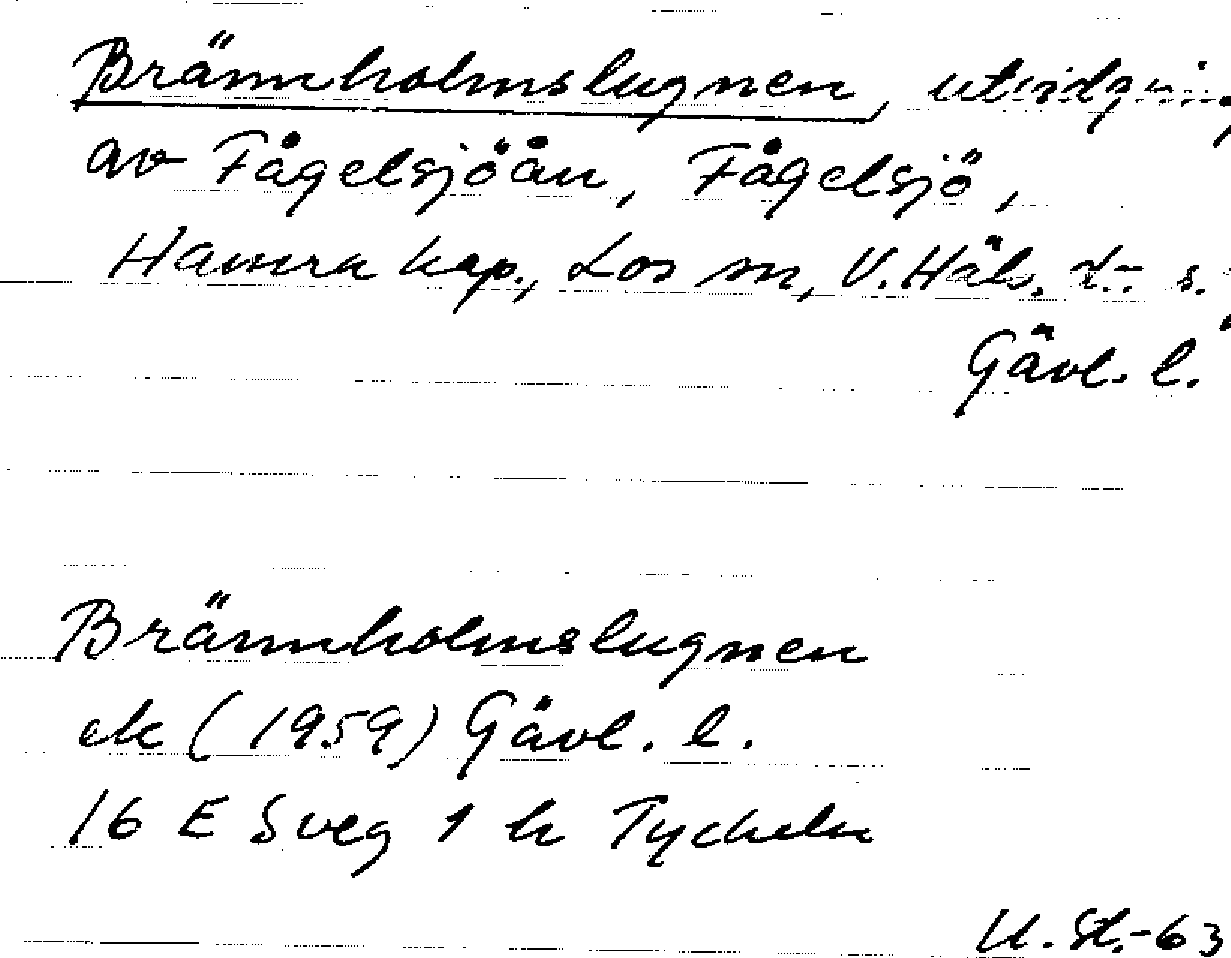 Brännholmslugnen, utvidgning
av Fågelsjöån, Fågelsjö,
Hamra kap., Los sn, V. Häls. d:s.
Gävl. l.
Brännholmslugnen
ek (1959) Gävl. l.
16 E Sveg 1 h Tyckeln
U. St.-63